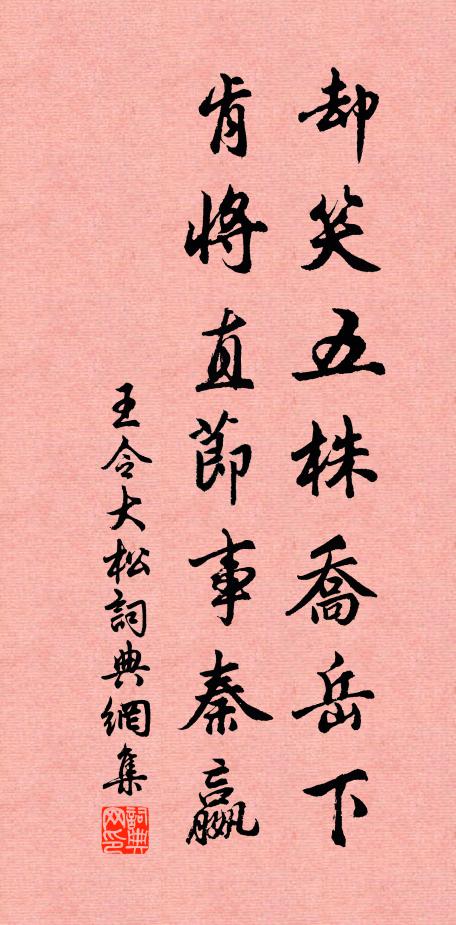 却笑五株喬岳下
肯將直節事秦嬴
王令大松詞典網集
詞典网印